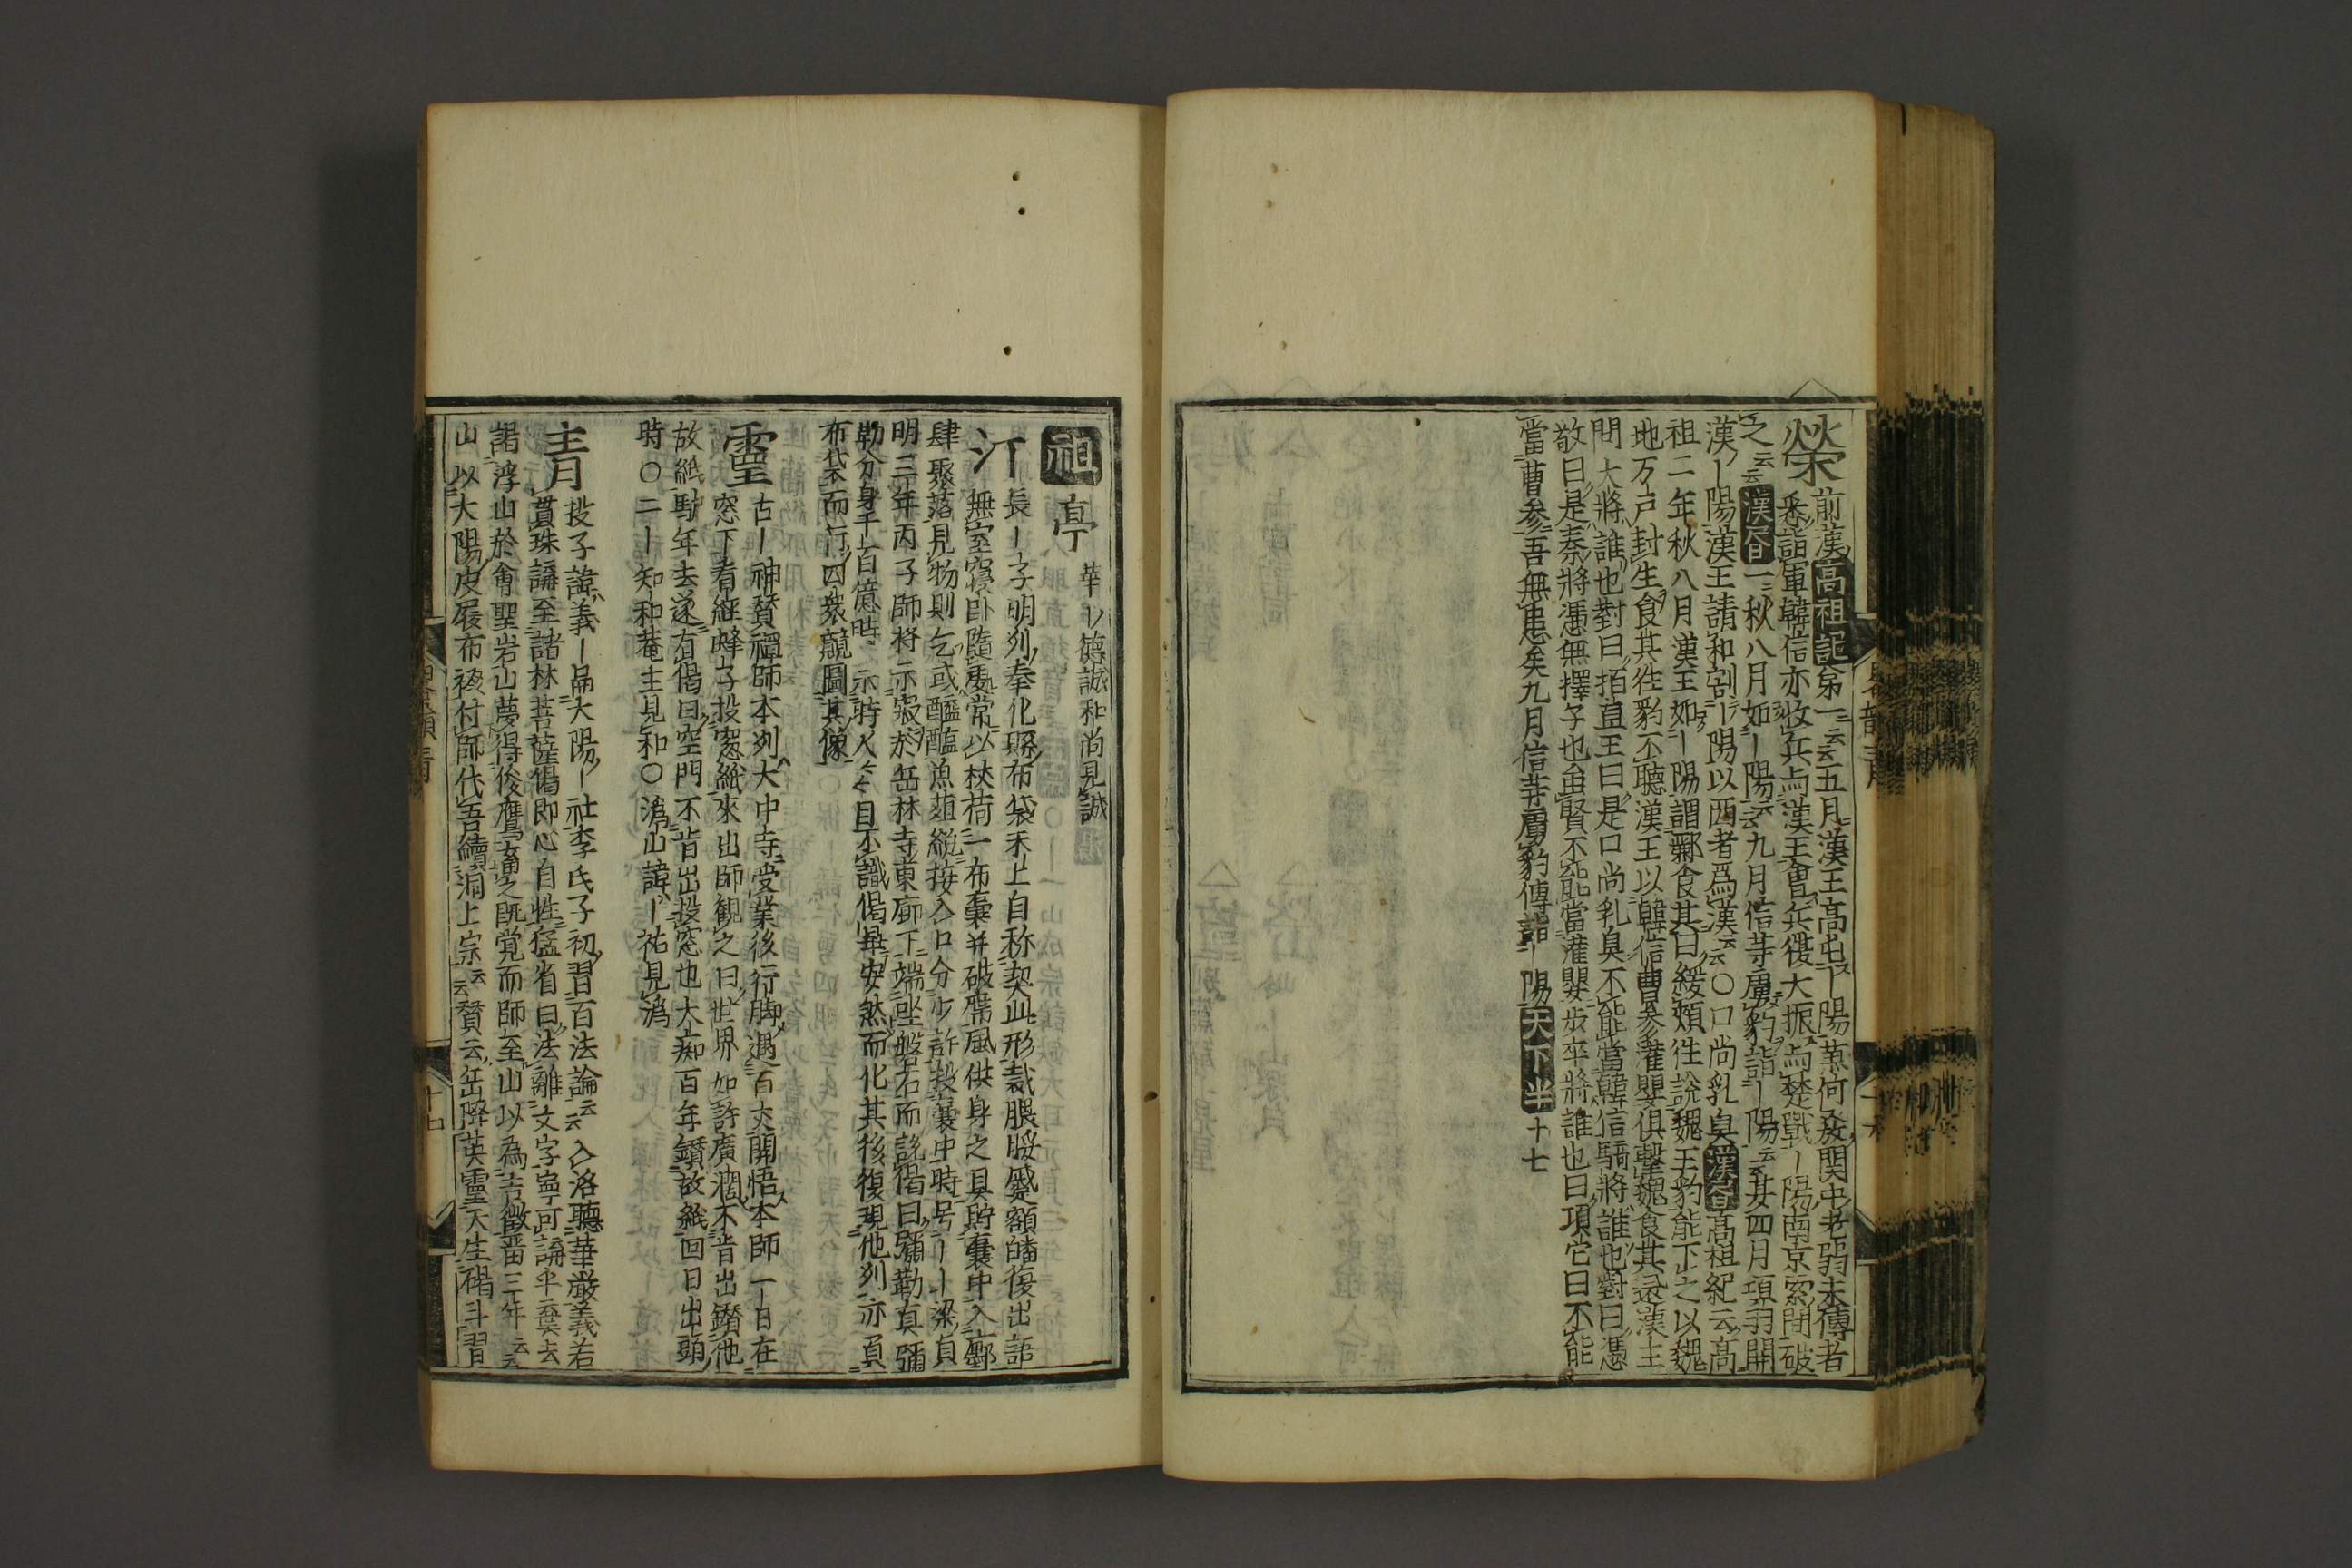 滎
前漢高祖記第一云云五月漢王高屯ー陽蕭何發関中老弱未傅者
悉詣軍韓信亦收兵与漢王會兵復大振与楚戰ー陽南京索間破
之云云漢書一三秋八月如ー陽云云九月信等虜豹詣ー陽云云其四月項羽開
漢ー陽漢王請和割ー陽以西者爲漢云云〇口尚乳臭漢書高祖紀云高
祖二年秋八月漢王如ー陽謂酈食其曰緩頰往說魏王豹能下之以魏
地万戸封生食其往豹不聽漢王以韓信曹參灌嬰俱擊魏食其還漢王
問大將誰也對曰栢直王曰是口尚乳臭不能當韓信騎將誰也對曰馮
敬曰是秦將馮無擇子也虽賢不能當灌嬰步卒將誰也曰項它曰不能
當曹参吾無患矣九月信等虜豹傳詣ー陽天下半十七
祖
亭 華ー德誠和尚見誠
汀
長ー子明州奉化縣布袋禾上自称契此形裁腲脮蹙額皤復出語
無定寢卧隨處常以杖荷一布囊并破席凡供身之具貯囊中入鄽
肆聚落見物則乞或醯醢魚葅纔接入口分少許投囊中時号ーー梁貞
明三年丙子師將示寂於岳林寺東廊下端坐磐石而說偈曰彌勒真彌
勒分身千百億時時示時人々々自不識偈畢安然而化其後復現他州亦負
布袋而行四衆競圖其像
靈
古ー神賛禪師本州大中寺受業後行脚遇百丈開悟本師一日在
窓下看經蜂子投窓紙來出師観之曰世界如許廣濶不肯出鑚他
故紙馿年去遂有偈曰空門不肯出投窓也大痴百年鑽故紙回日出頭
時〇二ー知和菴主見和〇溈山諱ー祐見溈
青
投子諱義ー爲大陽ー社李氏子初習百法論云云入洛聽華嚴義若
貫珠誦至諸林菩薩偈即心自性猛省曰法離文字寧可誦乎棄去
謁浮山於會聖岩山夢得俊鷹畜之既覚而師至山以為吉徴畱三年云云
山以大陽皮履布裰付師代吾續洞上宗云云賛云岳降英靈天生碣斗習